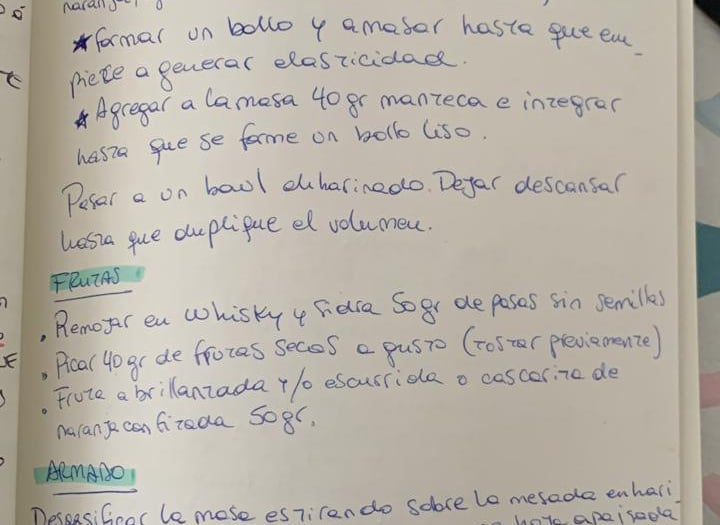 naranja
* formar un bollo y amasar hasta que em_
piece a generar elasticidad.
* Agregar a la masa 40 gr manteca e integrar
hasta que se forme un bollo liso.
Pasar a un bowl enharinado. Dejar descansar
hasta que duplique el volumen.
FRUTAS
. Remojar en whisky y sidra 50gr de pasas sin semillas
. Picar 40 gr de frutas secas a gusto (tostar previamente)
. Fruta abrillantada y/o escurrida o cascarita de
naranja confitada 50gr.
ARMADO
Desgasificar la masa estirando sobre la mesada enhari_
hoja apaisada